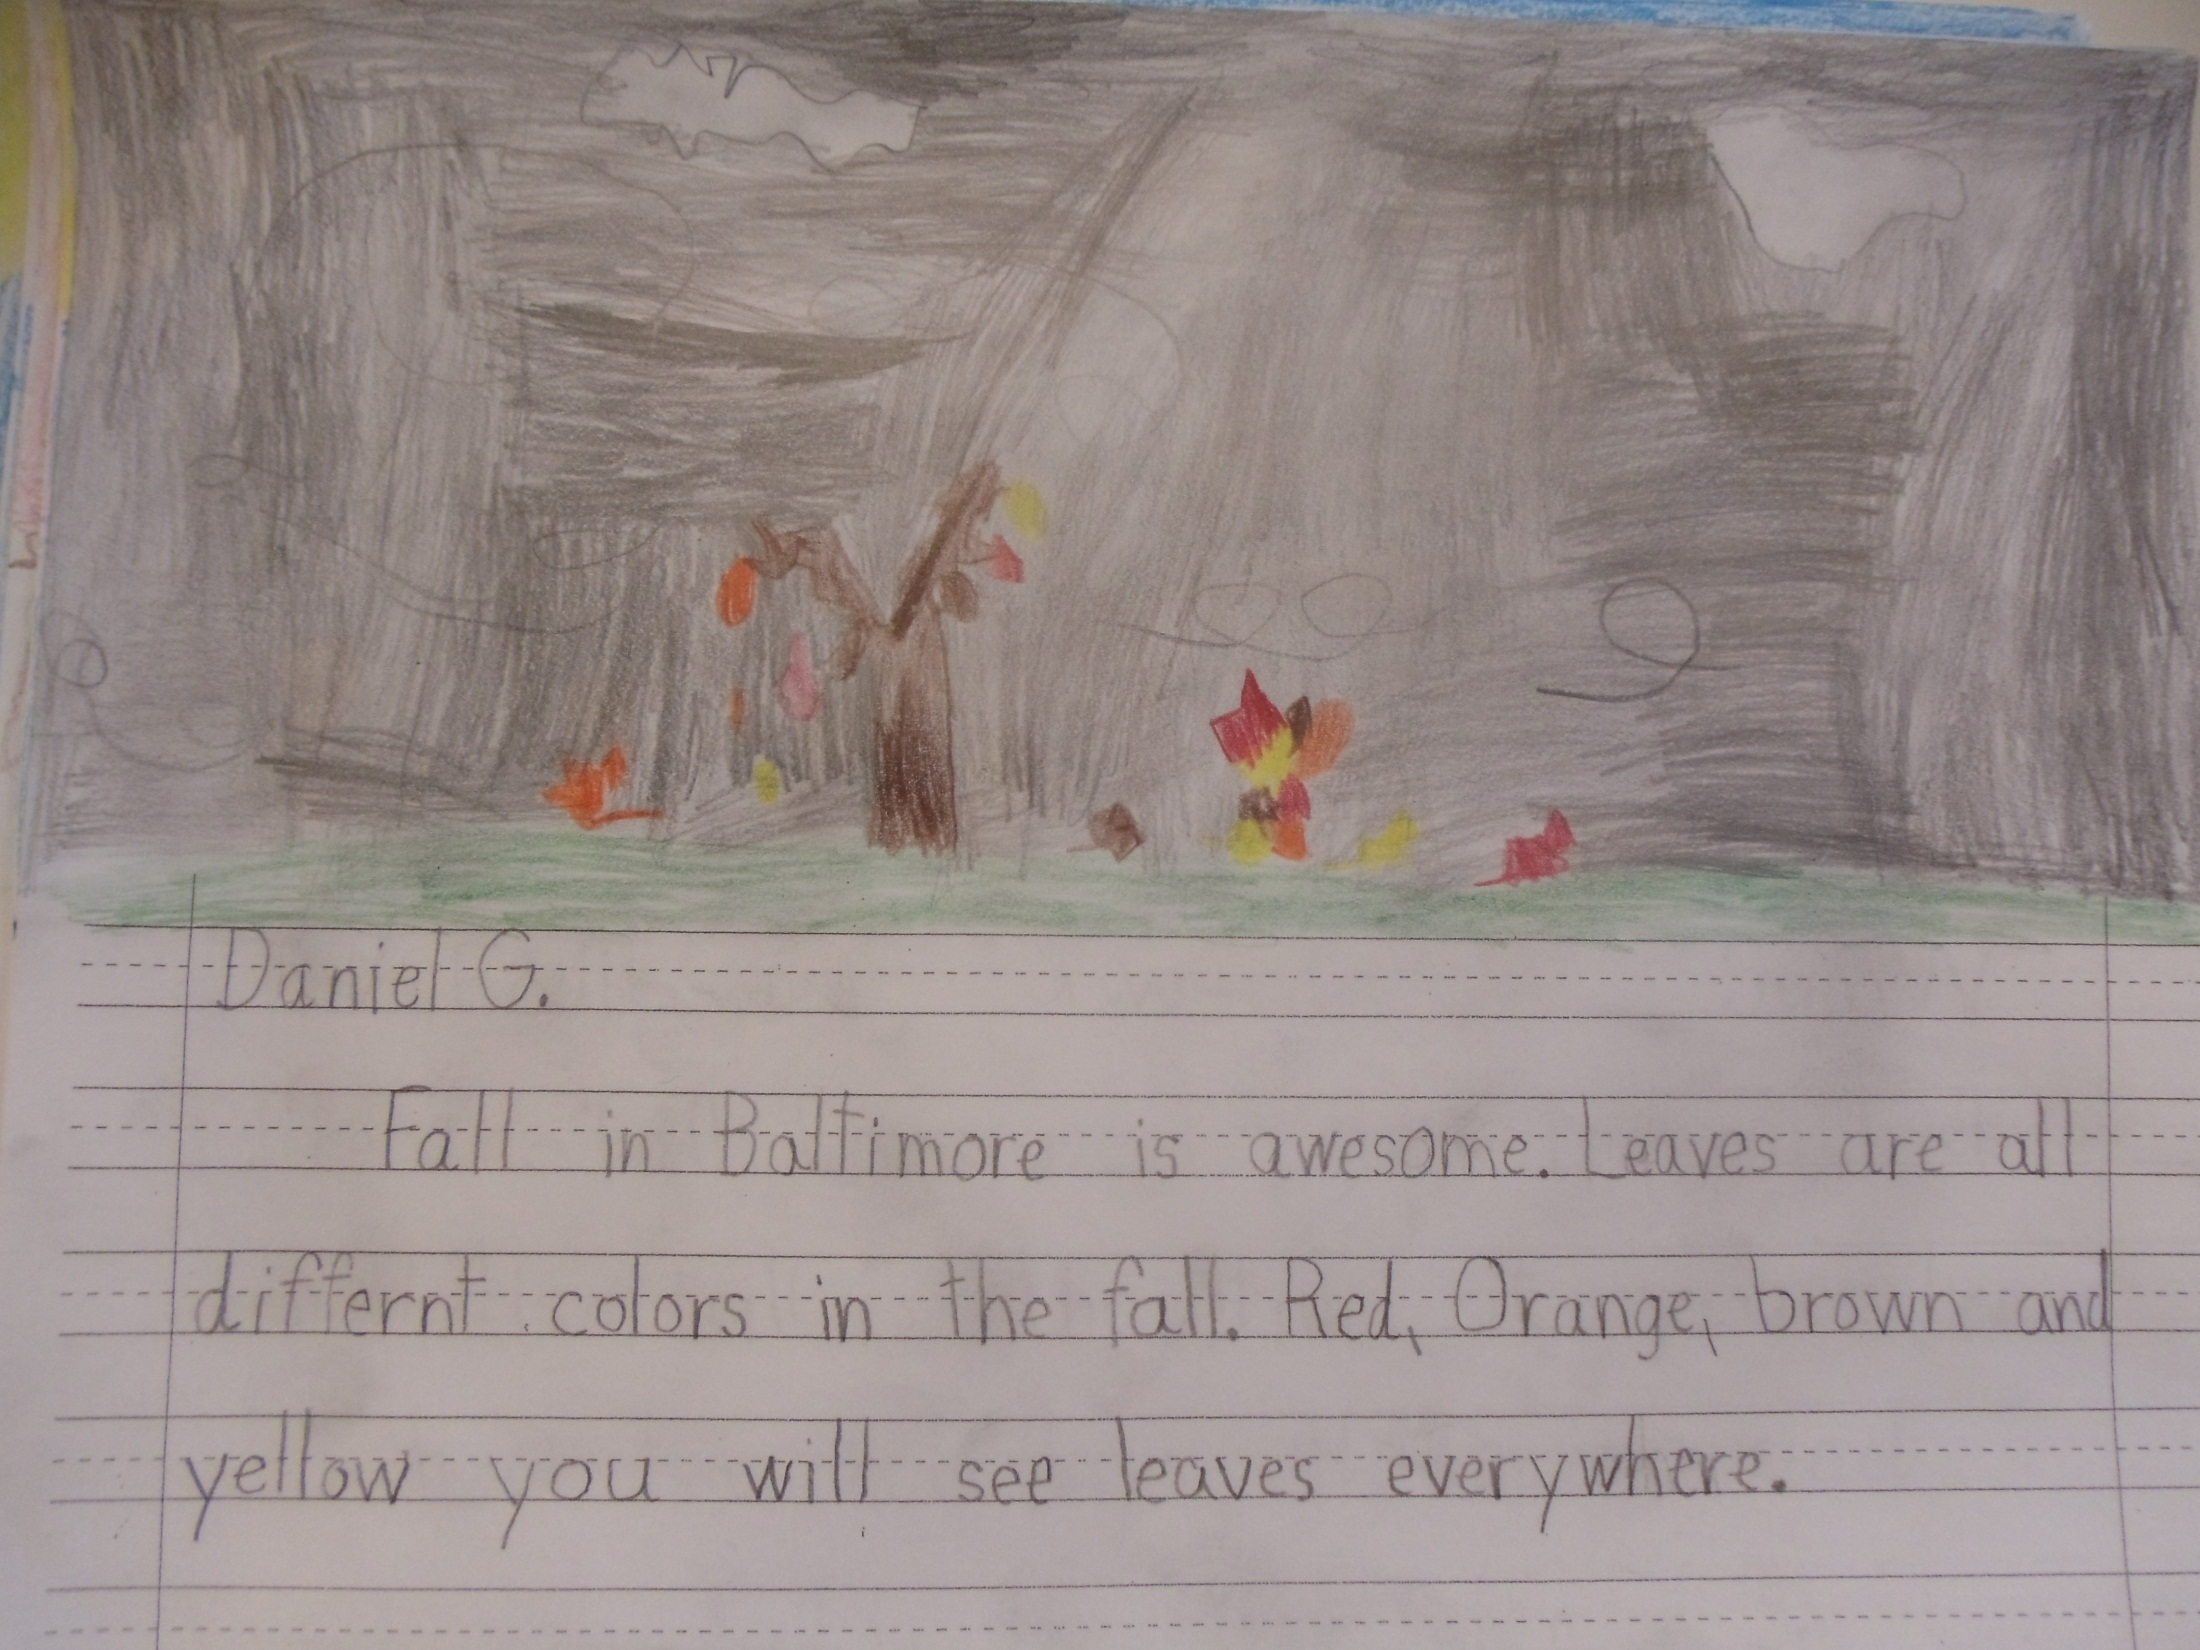 Daniel G.
Fall in Baltimore is awesome. Leaves are all
differnt colors in the fall. Red, Orange, brown and
yellow you will see leaves everywhere.